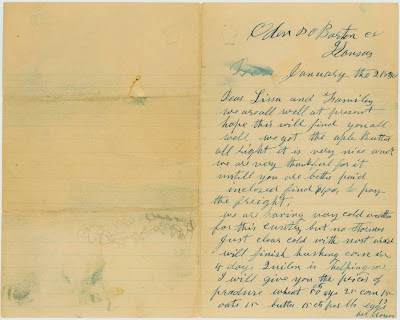 Oden PO Barton co
Kansas
From January the 21
Dear Lissa and Familey
we are all well at present
hope this will find you all
well we got the aple Butter
all Right it is very nice and
we are very thankful for it
untill you are better paid
inclosed find to pay
the freight,
we are having very cold weather
for this cuntry but no Stormes
Just clear cold with west wind
will finish husking corn in
4 days is helping us
I will give you the prices of
produse wheat 60 rye 25 corn 15
oats 15 butter 15 cts per lb eggs